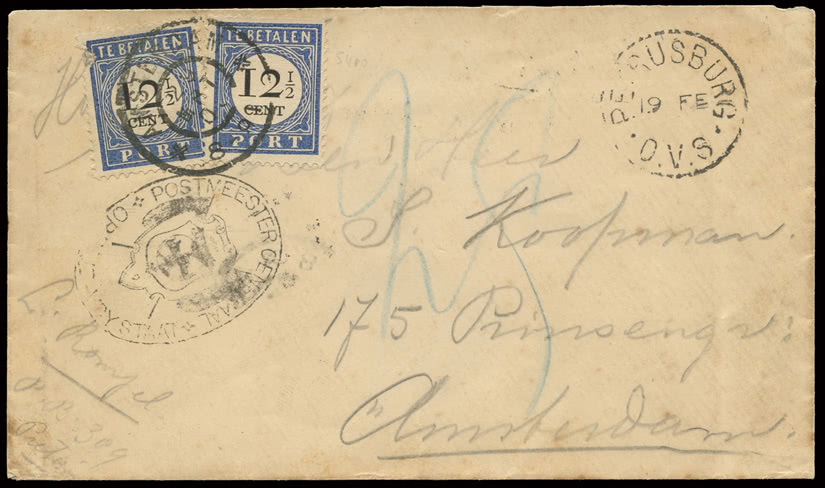 TE BETALEN
12 1/2
CENT
PORT
TE BETALEN
12 1/2
CENT
PORT
RUSBURG
19 FE
O.V.S.
POSTMEESTER GENERAAL
VRY STAAT
25
Heer
S. Koopman.
175 Prinsengr:
Amsterdam.
309